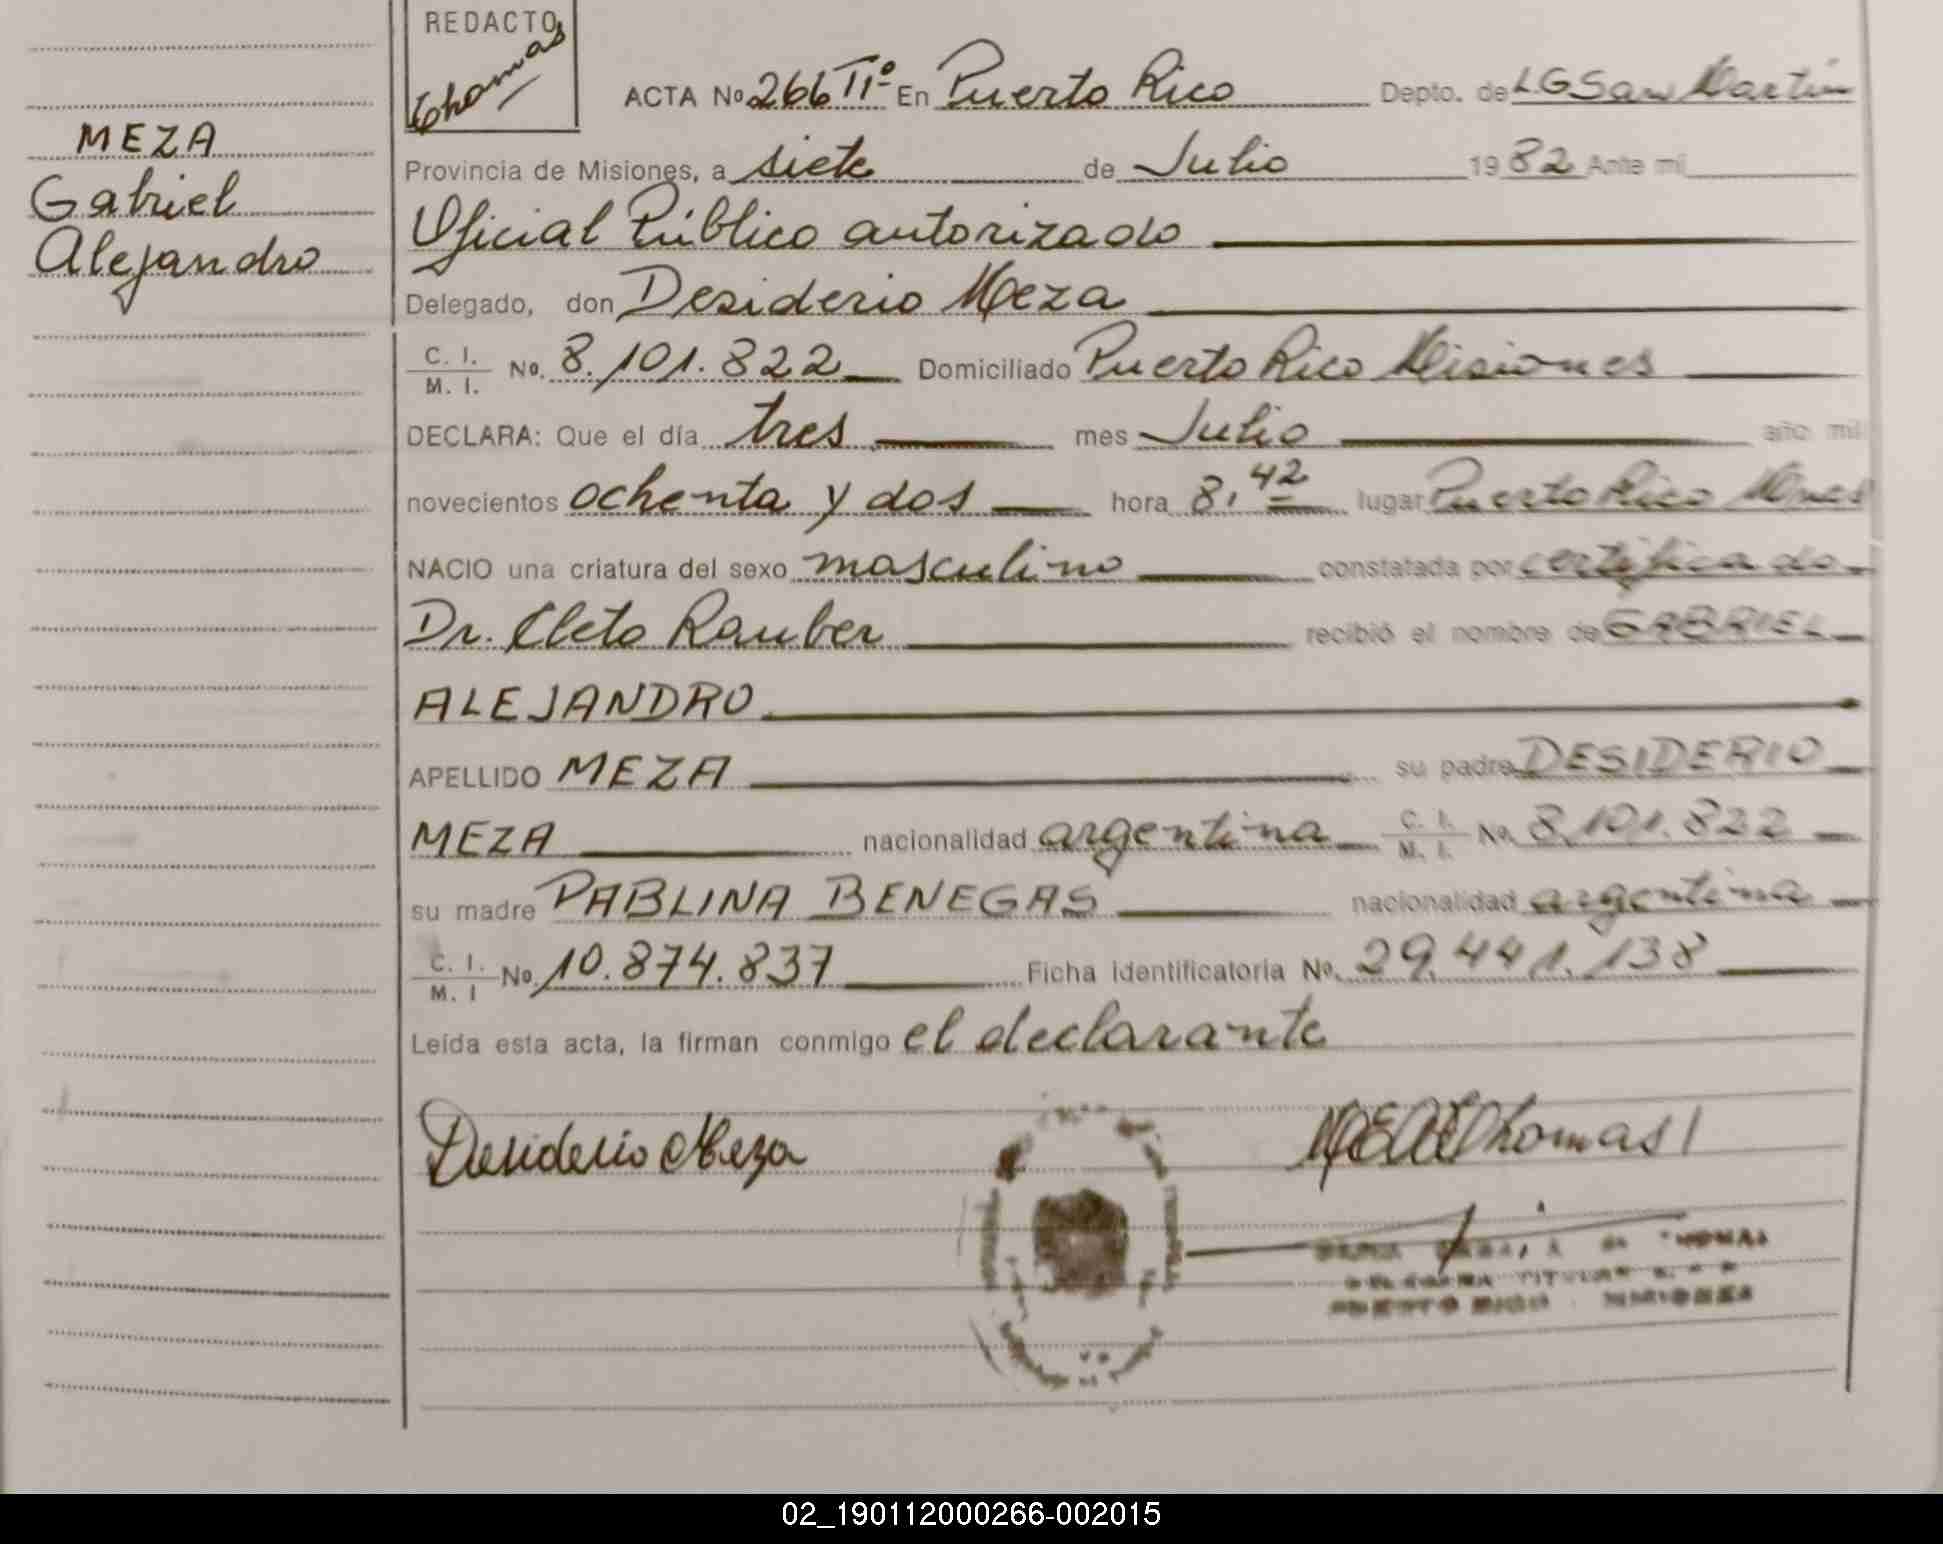 REDACTO
Thomas
MEZA
Gabriel
Alejandro
ACTA Nº 266 IIº En Puerto Rico Depto. de L G San Martín
Provincia de Misiones, a siete de Julio 1982 Ante mí
Oficial Público autorizado
Delegado, don Desiderio Meza
C. I. / M. I. Nº. 8.101.822 Domiciliado Puerto Rico Misiones
DECLARA: Que el día tres mes Julio año mil
novecientos ochenta y dos hora 8,42 lugar Puerto Rico Mnes
NACIO una criatura del sexo masculino constatada por certificado
Dr. Cleto Rauber recibió el nombre de GABRIEL
ALEJANDRO
APELLIDO MEZA su padre DESIDERIO
MEZA nacionalidad argentina C. I. / M. I. Nº 8.101.822
su madre PABLINA BENEGAS nacionalidad argentina
C. I. / M. I Nº 10.874.837 Ficha identificatoria Nº. 29.441.138
Leída esta acta, la firman conmigo el declarante
Desiderio Meza
Thomas
DELEGADA TITULAR
PUERTO RICO - MISIONES
02_190112000266-002015